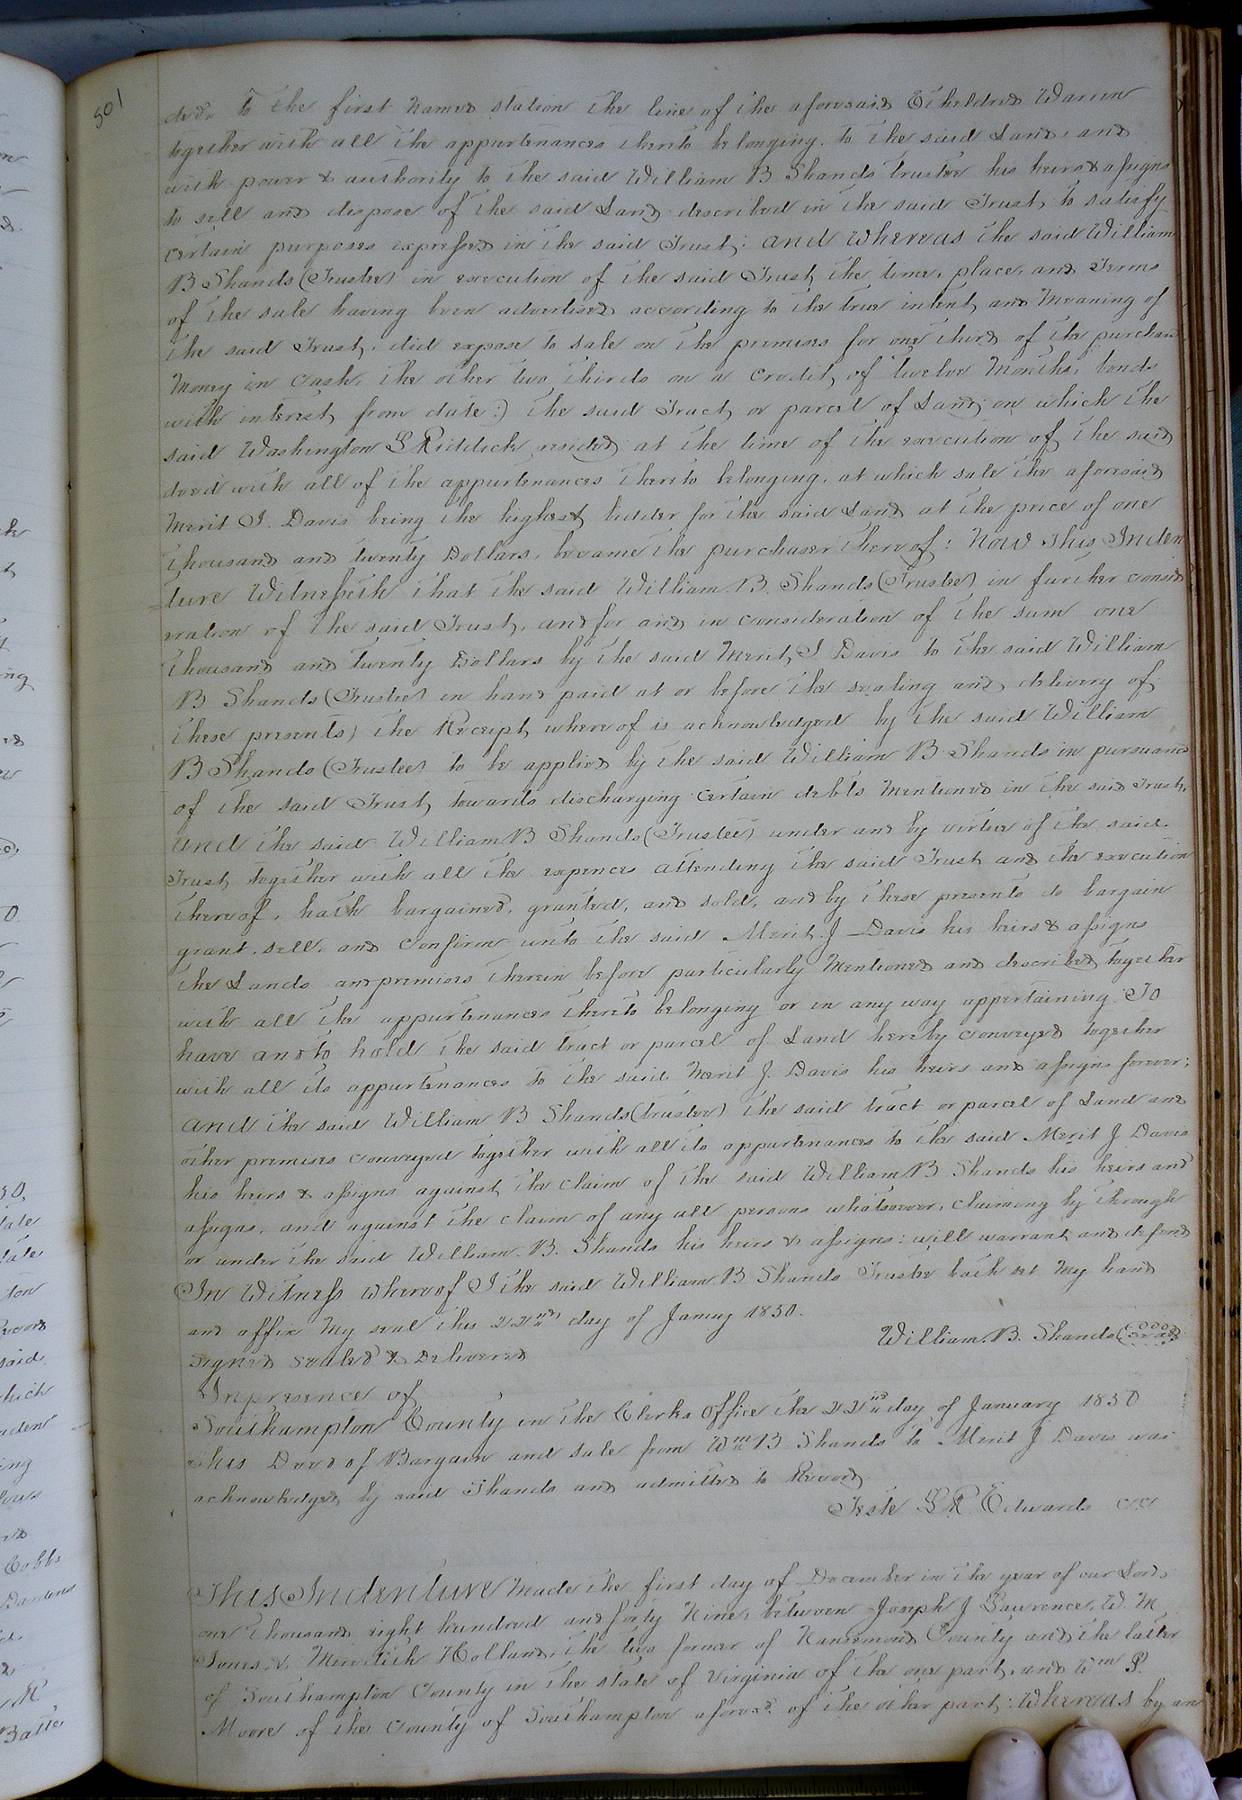 501
to the first named station the line of the aforesaid Etheldred Warren
together with all the appurtenances thereto belonging. to the said Land, and
with power & authority to the said William B Shands trustee his heirs & assigns
to sell and dispose of the said Land described in the said Trust, to satisfy
certain purposes expressed in the said Trust; and whereas the said William
B Shands (Trustee) in execution of the said Trust, the time, place, and Terms
of the sale having been advertised according to the true intent, and Meaning of
the said Trust, did expose to sale on the premises for one third of the purchase
Money in cash, the other two thirds on a credit, of twelve Months, bonds
with interest, from date:) the said Tract, or parcel of Land; on which the
said Washington Riddick resided at the time of the execution of the said
deed with all of the appurtenances thereto belonging, at which sale the aforesaid
Merit J. Davis being the highest bidder for the said Land at the price of one
thousand and twenty Dollars, became the purchaser thereof: Now this Inden
ture Witnesseth that the said William B. Shands (Trustee) in further consid
eration of the said Trust, and for and in consideration of the sum one
thousand and twenty Dollars by the said Merit J Davis to the said William
B Shands (Trustee) in hand paid at or before the sealing and delivery of
these presents, the Receipt whereof is acknowledged by the said William
B Shands (Trustee) to be applied by the said William B Shands in pursuance
of the said Trust, towards discharging certain debts Mentioned in the said Trust,
and the said William B Shands (Trustee) under and by virtue of the said
Trust, together with all the expences attending the said Trust and the execution
thereof, hath bargained, granted, and sold, and by these presents do bargain
grant, sell, and confirm unto the said Merit J Davis his heirs & assigns
the Lands and premises therein before particularly Mentioned and described, together
with all the appurtenances thereto belonging or in any way appertaining. To
have and to hold the said tract or parcel of Land hereby conveyed together
with all its appurtenances to the said Merit J. Davis his heirs and assigns forever;
and the said William B Shands (trustee) the said tract or parcel of Land and
other premises conveyed together with all its appurtenances to the said Merit J Davis
his heirs & assigns against, the claim of the said William B Shands his heirs and
assigns, and against the claim of any all persons whatsoever, claiming by through
or under the said William B. Shands his heirs & assigns: will warrant and defend
In Witness whereof I the said William B Shands Trustee hath set My hand
and affix My seal this 22nd day of Januy 1850.
William B. Shands (Seal)
Signed Sealed & Delivered
In presence of
Southampton County in the Clerks Office the 22nd day of January 1850
this Deed of Bargain and sale from Wm B Shands to Merit J Davis was
acknowledged by said Shands and admitted to Record
Teste L R Edwards CC
This Indenture Made the first day of December in the year of our Lord
one thousand eight hundred and forty Nine, between Joseph J Lawrence, W. M
Jones, & Meredith Holland, the two former of Nansemond County and the latter
of Southampton County in the state of Virginia of the one part, and Wm P.
Moore of the County of Southampton aforesd of the other part; Whereas by an